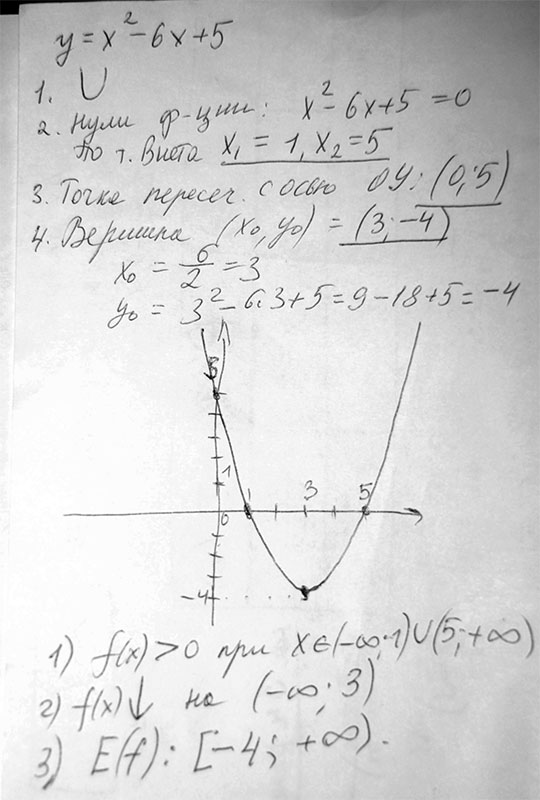 y = x² - 6x + 5
1. ∪
2. Нули ф-ции: x² - 6x + 5 = 0
По т. Виета x₁ = 1, x₂ = 5
3. Точка пересеч. с осью OY: (0; 5)
4. Вершина (x₀, y₀) = (3; -4)
x₀ = 6/2 = 3
y₀ = 3² - 6·3 + 5 = 9 - 18 + 5 = -4
5
1
1 3 5
0
-4
1) f(x) > 0 при x ∈ (-∞; 1) ∪ (5; +∞)
2) f(x) ↓ на (-∞; 3)
3) E(f): [-4; +∞).